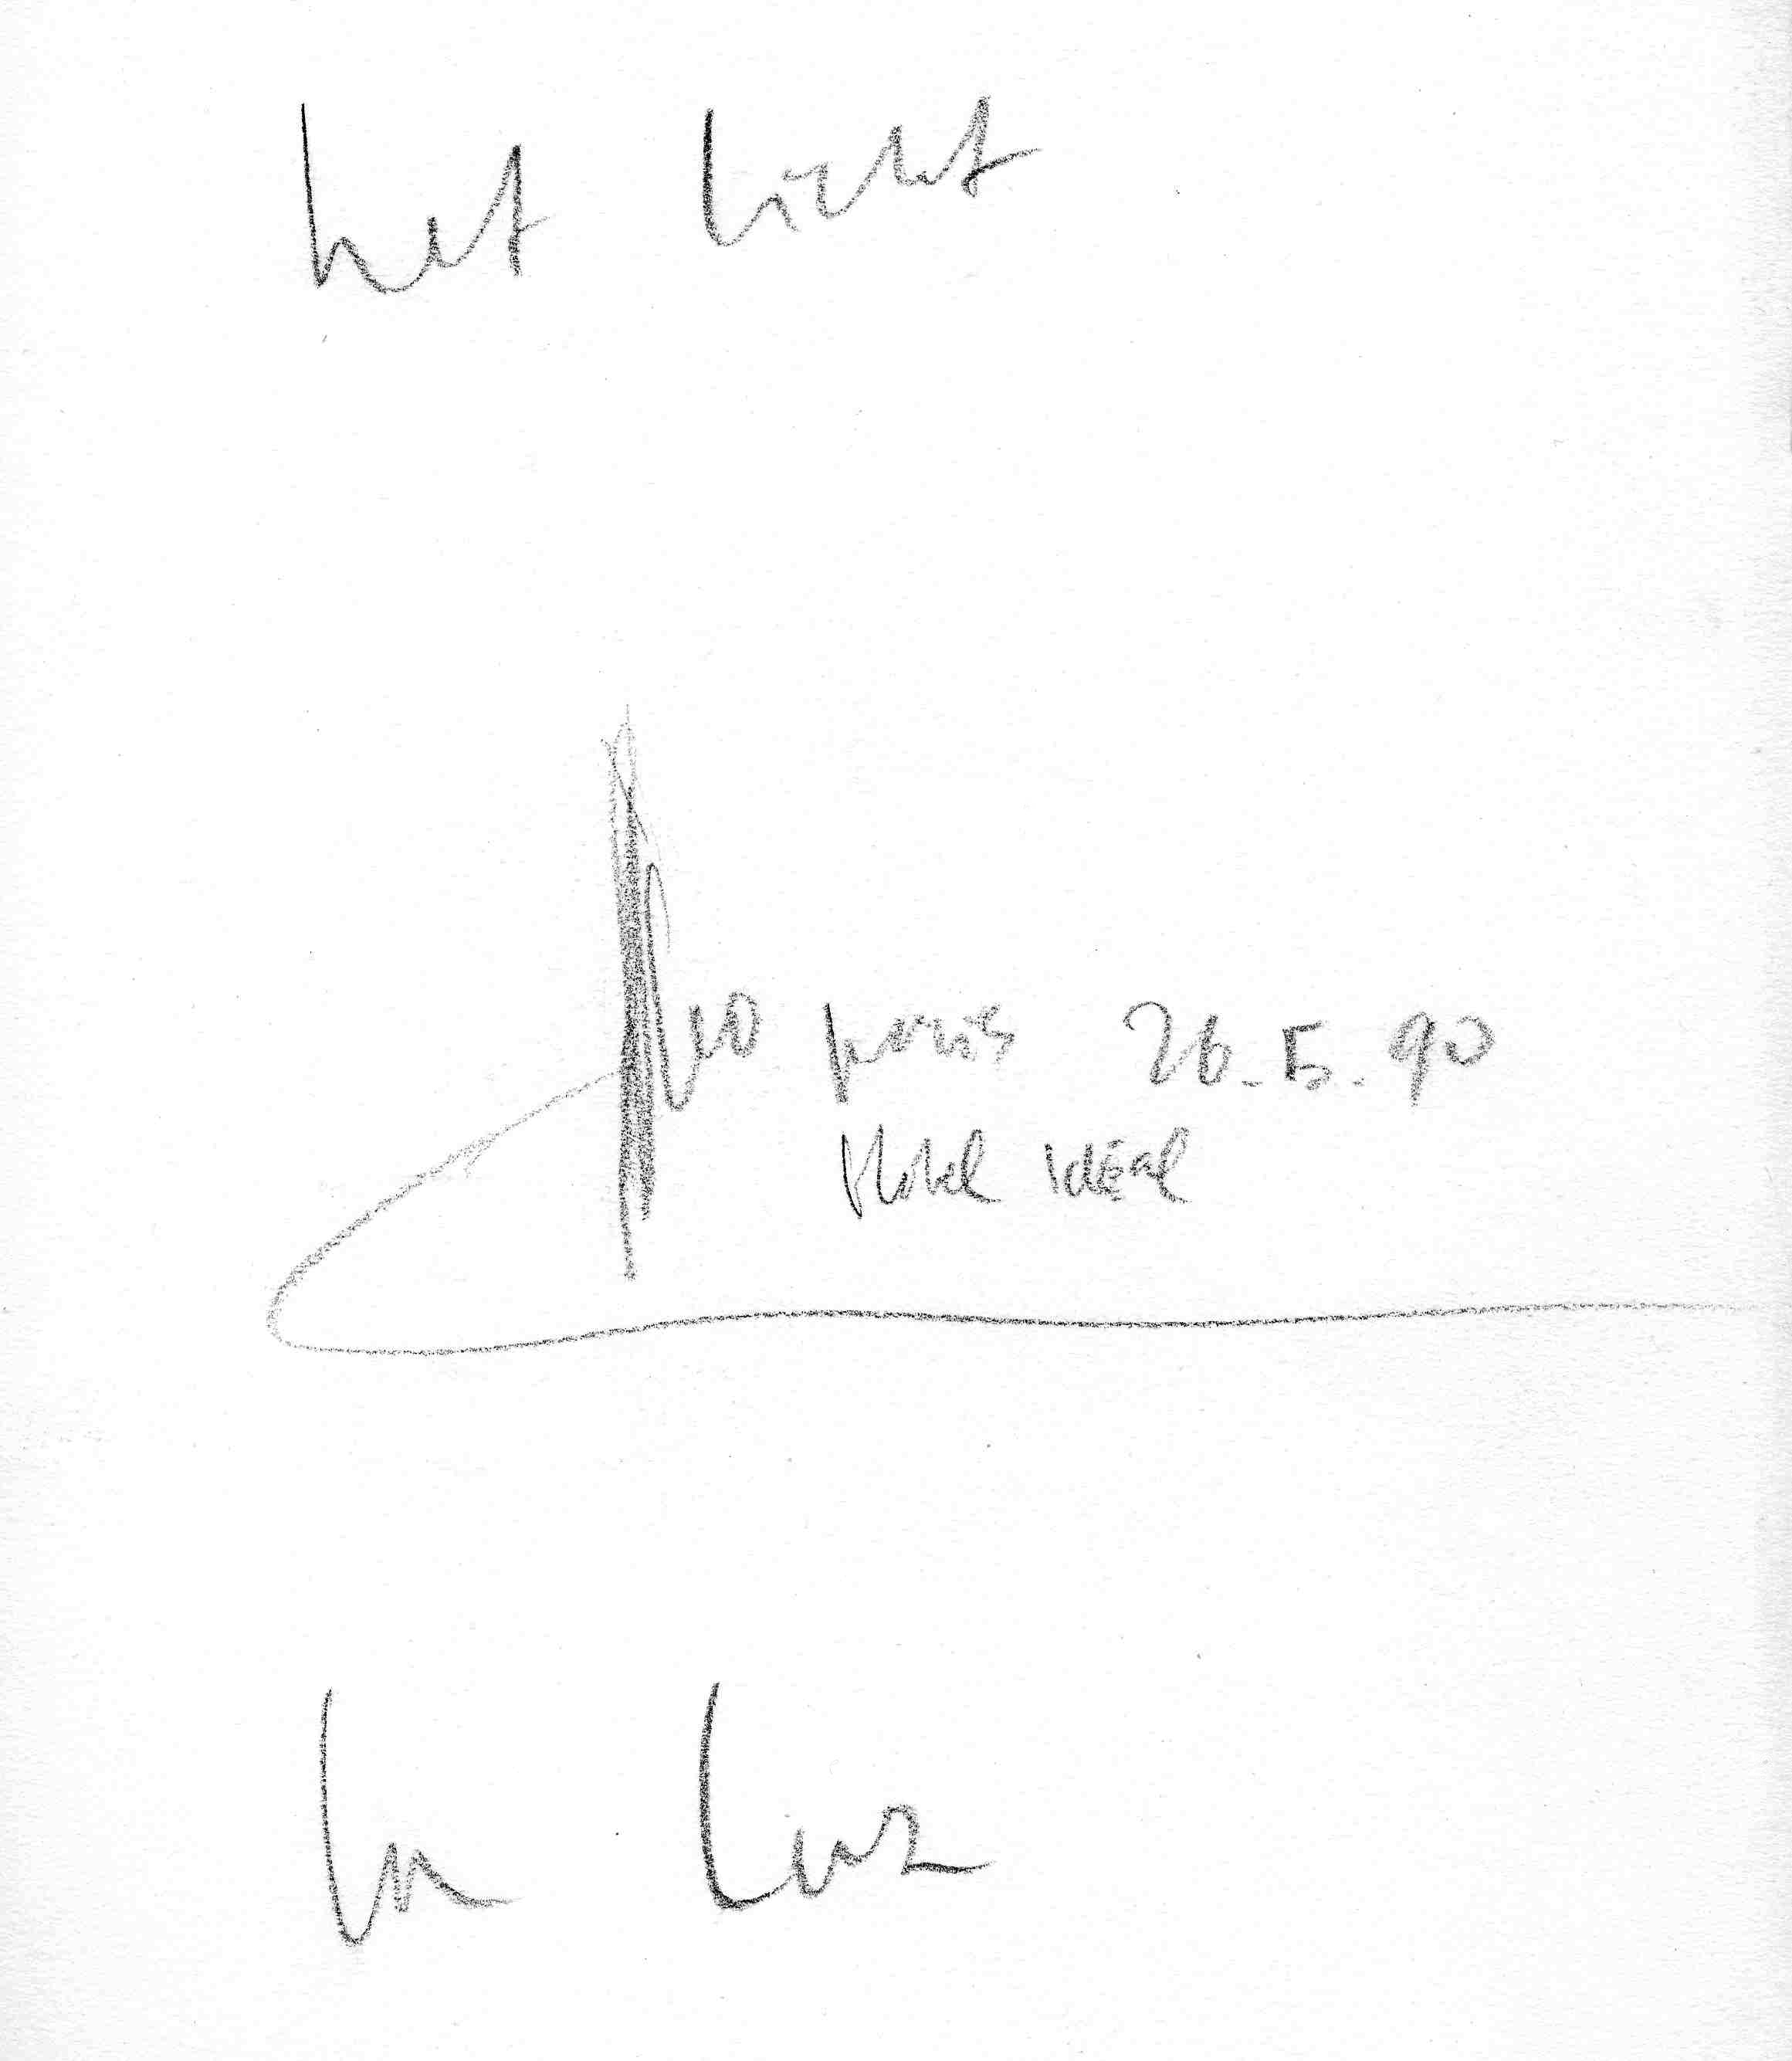 het licht
paris 26.5.90
Hotel idéal
la luz